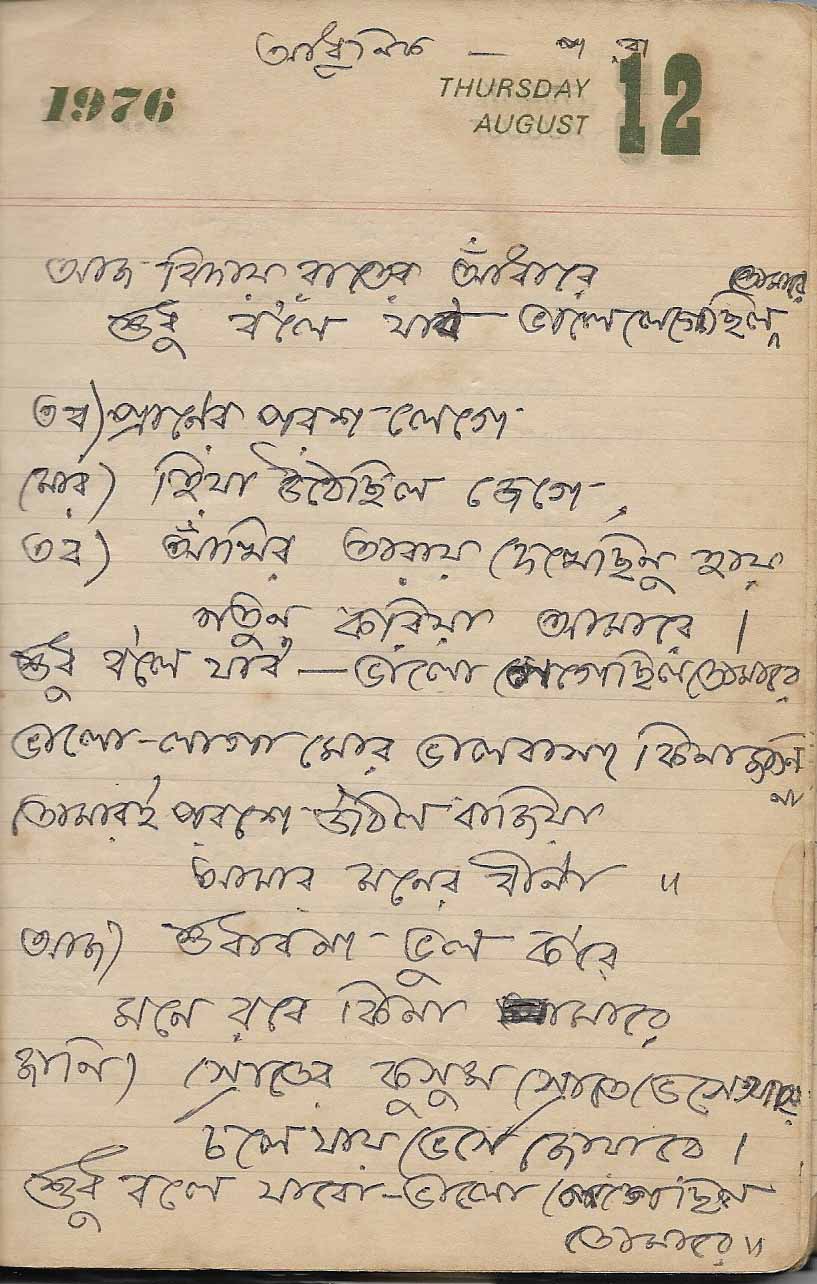 আধুনিক —
1976
THURSDAY
AUGUST
12
আজ বিদায় রাতের আঁধারে
শুধু ব'লে যাব ভালো লেগেছিল তোমারে
তব) প্রাণের পরশ লেগে
মোর) হিয়া উঠেছিল জেগে
তব) আঁখির তারায় দেখেছিনু হায়
নতুন করিয়া আমারে ।
শুধু ব'লে যাব — ভালো লেগেছিল তোমারে
ভালো-লাগা মোর ভালবাসা কিনা জানিনা
তোমারই পরশে উঠিল বাজিয়া
আমার মনের বীনা ॥
আজ) শুধাবনা ভুল ক'রে
মনে রবে কিনা আমারে
জানি) স্রোতের কুসুম স্রোতে ভেসে
চলে যায় ভেসে জোয়ারে ।
শুধু বলে যাবো - ভালো লেগেছিল
তোমারে ॥